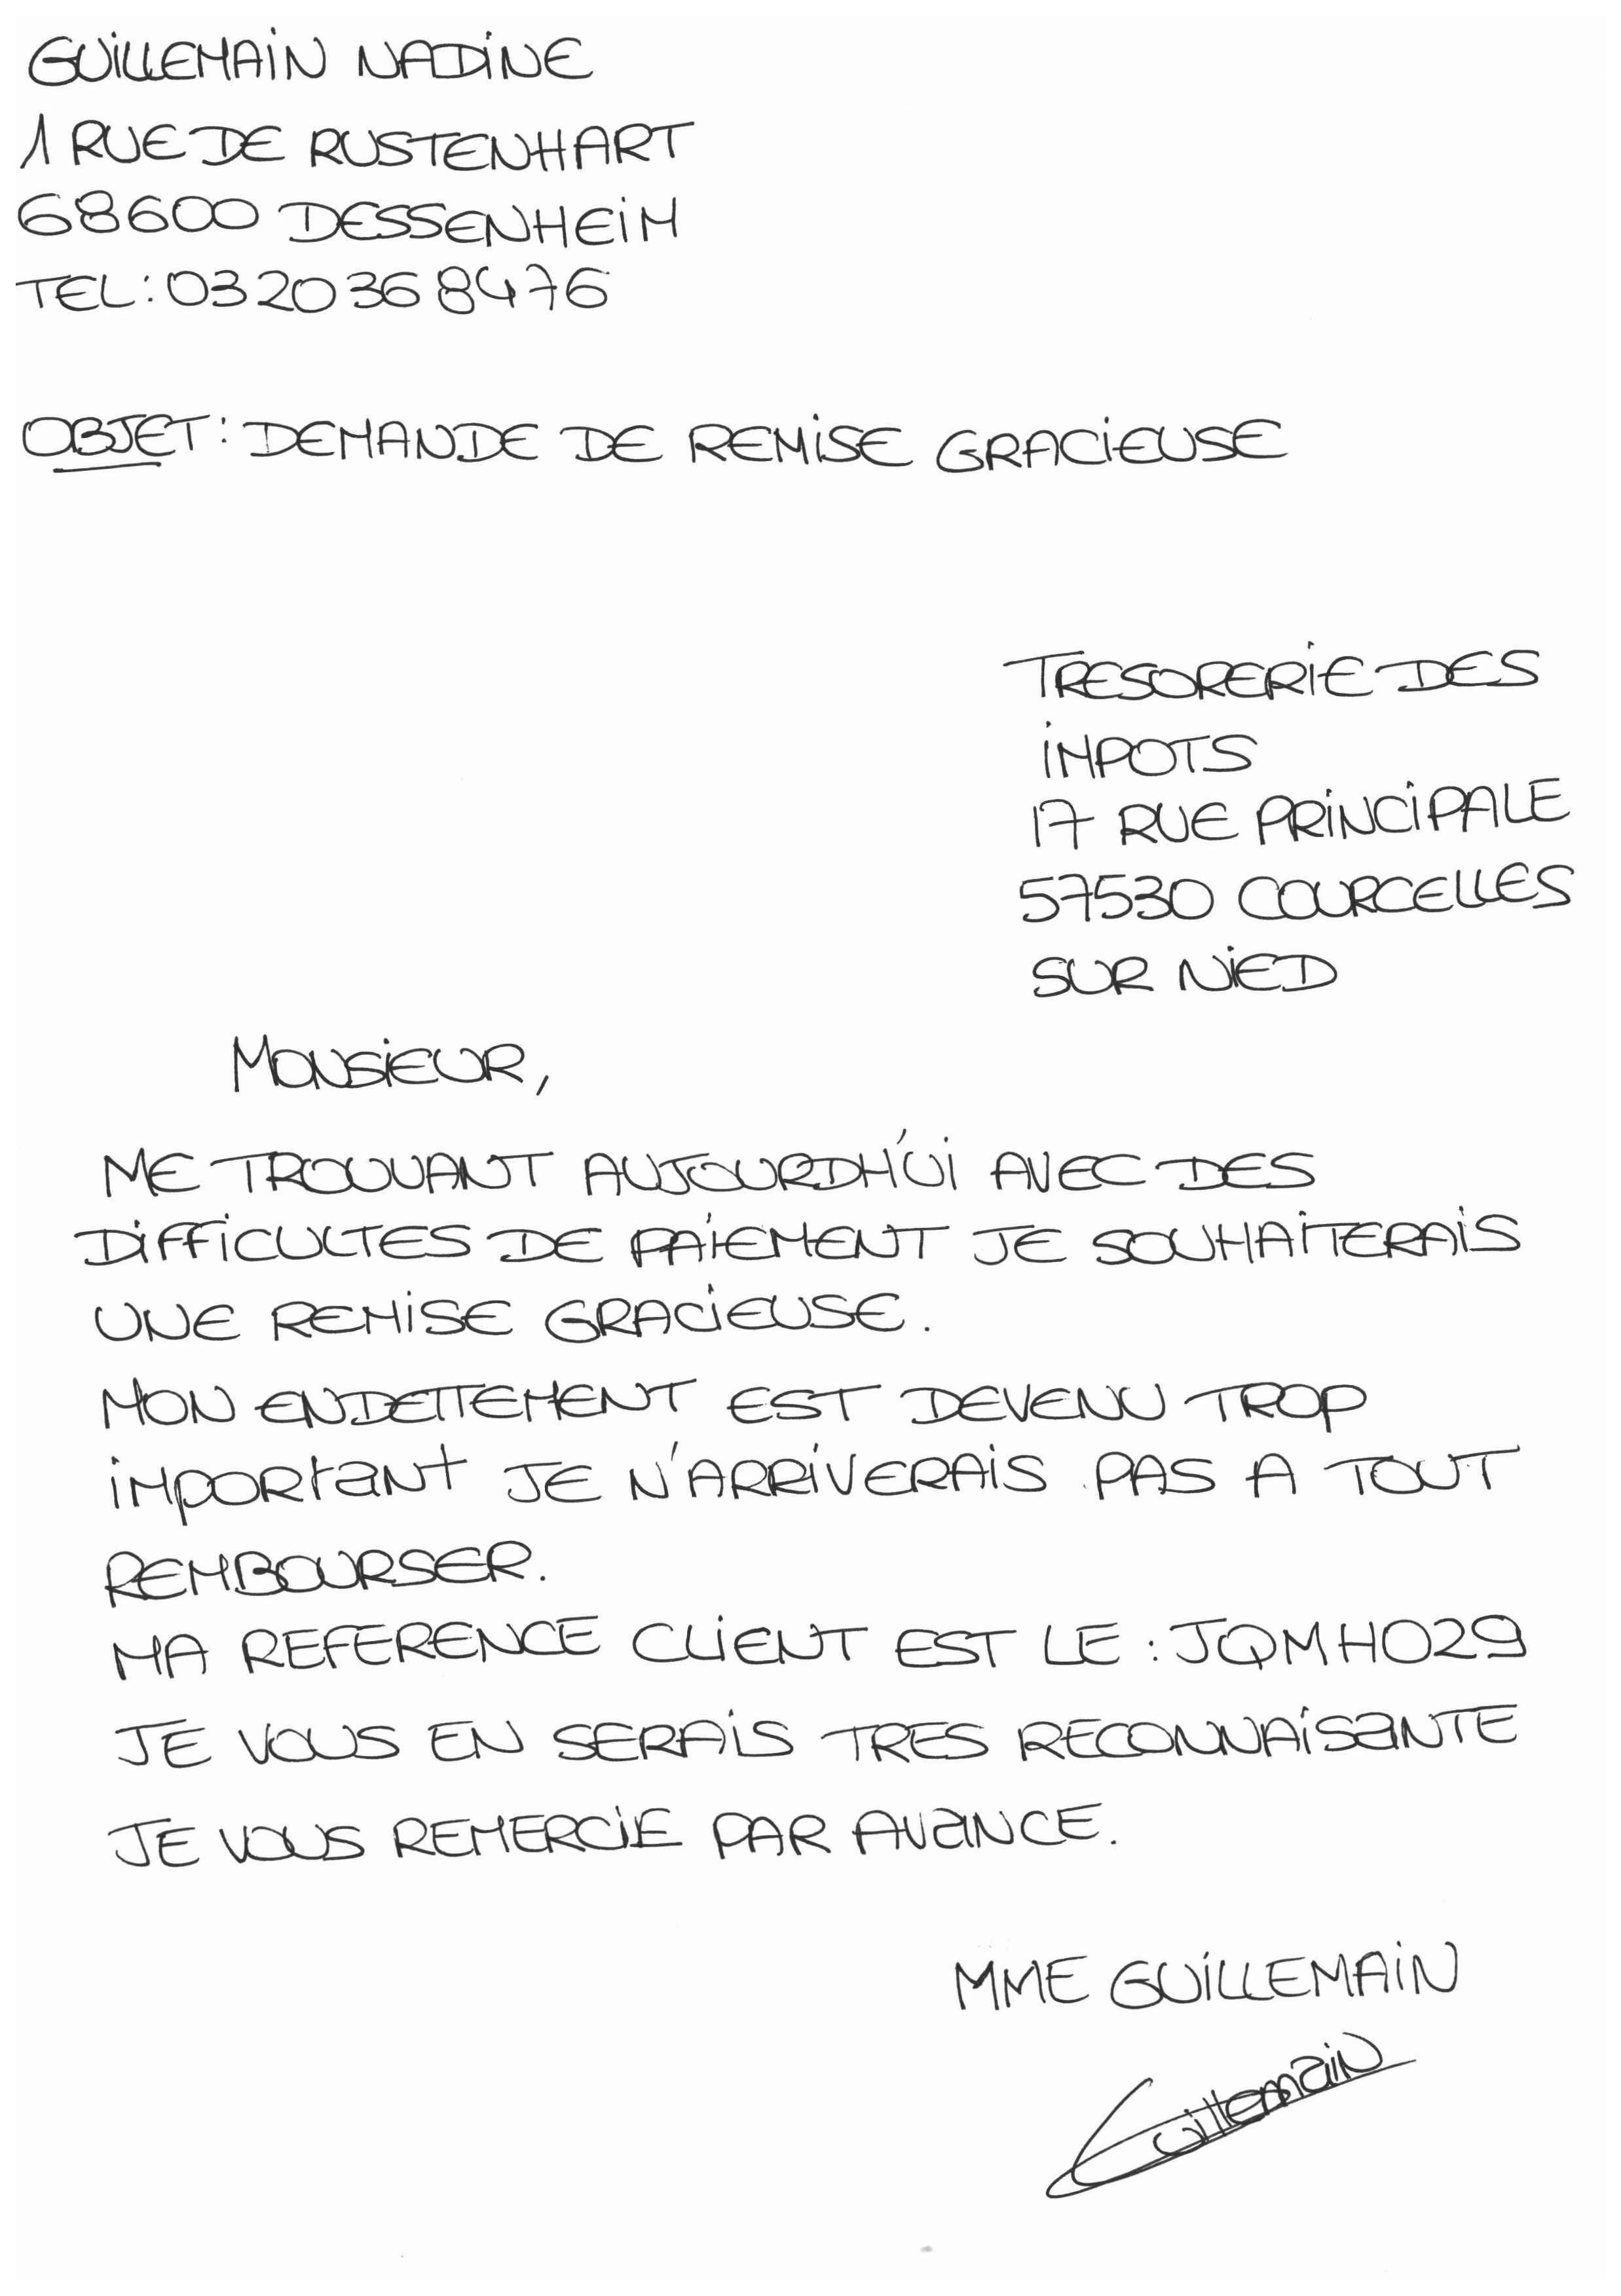 GUILLEMAIN NADINE
1 RUE DE RUSTENHART
68600 DESSENHEIM
TEL: 0320368476
OBJET: DEMANDE DE REMISE GRACIEUSE
TRESORERIE DES
IMPOTS
17 RUE PRINCIPALE
57530 COURCELLES
SUR NIED
MONSIEUR,
ME TROUVANT AUJOURDH'UI AVEC DES
DIFFICULTES DE PAIEMENT JE SOUHAITERAIS
UNE REMISE GRACIEUSE.
MON ENDETTEMENT EST DEVENU TROP
IMPORTANT JE N'ARRIVERAIS PAS A TOUT
REMBOURSER.
MA REFERENCE CLIENT EST LE : JQMHO29
JE VOUS EN SERAIS TRES RECONNAISANTE
JE VOUS REMERCIE PAR AVANCE.
MME GUILLEMAIN
Guillemain